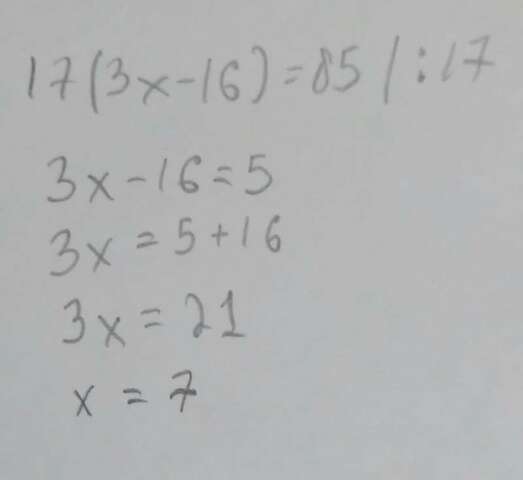 17(3x-16)=85 / :17
3x-16=5
3x=5+16
3x=21
x=7